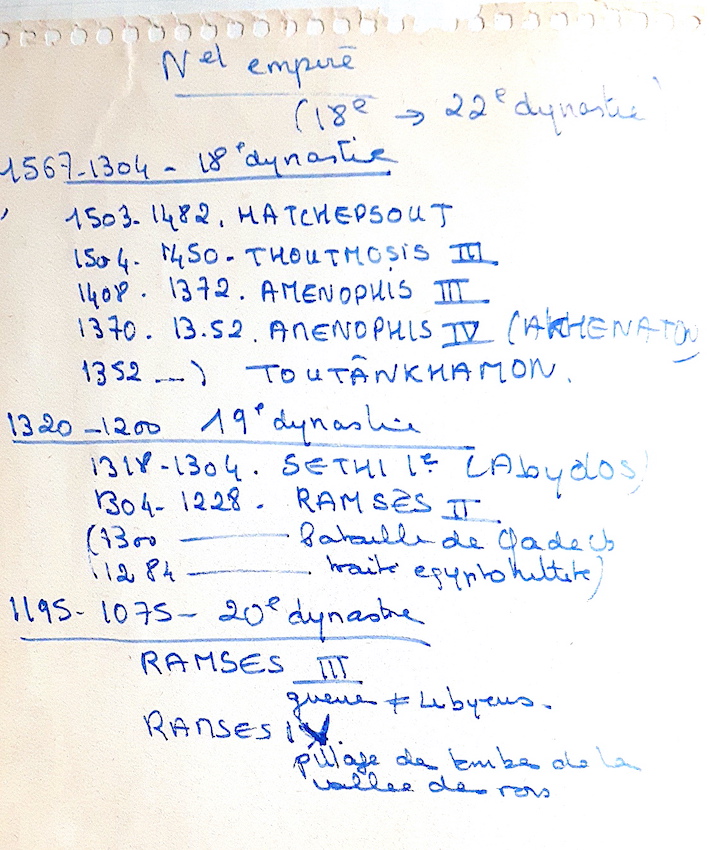 Nel empire
(18e → 22e dynastie)
1567-1304 - 18e dynastie
1503-1482. HATCHEPSOUT
1504. 1450- THOUTMOSIS III
1408. 1372. AMENOPHIS III
1370. 13.52. AMENOPHIS IV (AKHENATON)
1352 —) TOUTÂNKHAMON.
1320-1200 19e dynastie
1318-1304. SETHI Ier (Abydos)
1304-1228. RAMSÈS II
(1300 —— Bataille de Qadech
1284 —— traité egypto hittite)
1195-1075- 20e dynastie
RAMSES III
guerre ≠ Libyens.
RAMSES IV.
pillage de tombe de la
vallee de rois